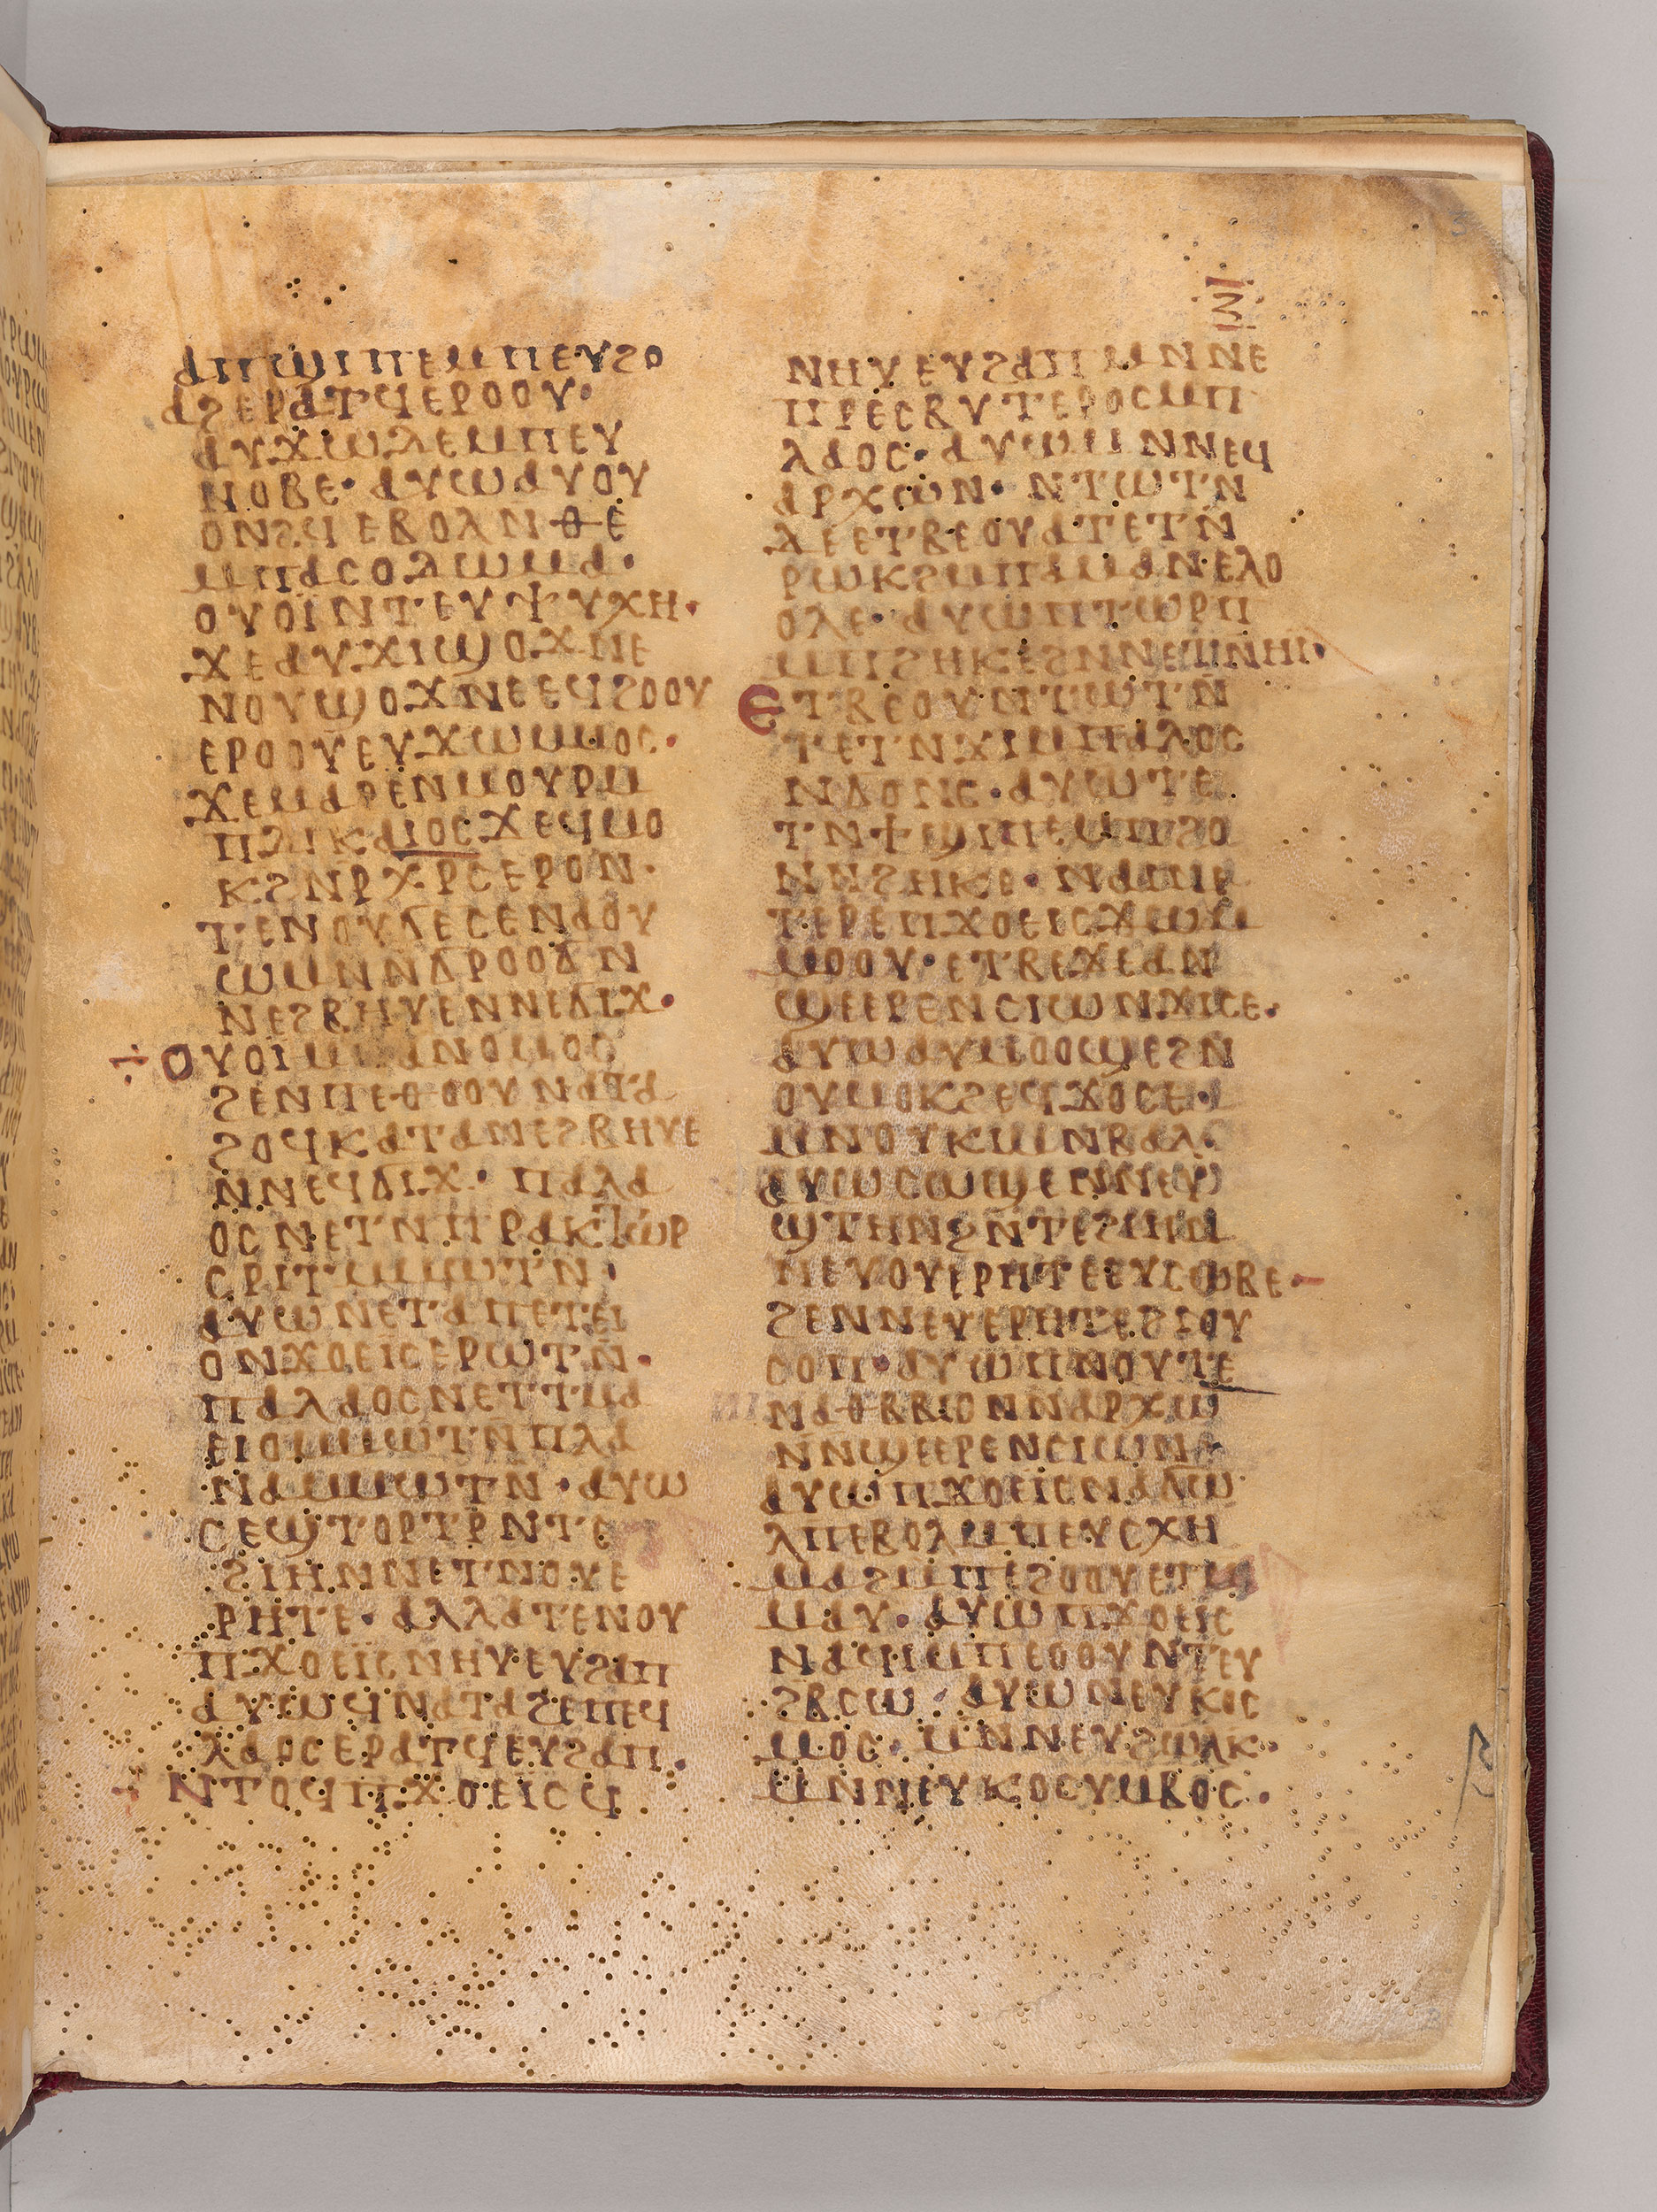 ⲁⲡϣⲓⲡⲉⲙⲡⲉⲩϩⲟ
ⲁϩⲉⲣⲁⲧϥⲉⲣⲟⲟⲩ·
ⲁⲩϫⲱⲗⲉⲙⲡⲉⲩ
ⲛⲟⲃⲉ· ⲁⲩⲱⲁⲩⲟⲩ
ⲟⲛϩϥⲉⲃⲟⲗⲛⲑⲉ
ⲙⲡⲁⲥⲟⲇⲱⲙⲁ·
ⲟⲩⲟⲓⲛⲧⲉⲩⲯⲩⲭⲏ·
ϫⲉⲁⲩϫⲓϣⲟϫⲛⲉ
ⲛⲟⲩϣⲟϫⲛⲉⲉϥϩⲟⲟⲩ
ⲉⲣⲟⲟⲩⲉⲩϫⲱⲙⲙⲟⲥ·
ϫⲉⲙⲁⲣⲉⲛⲙⲟⲩⲣⲙ
ⲡⲇⲓⲕⲁⲓⲟⲥϫⲉϥⲙⲟ
ⲕϩⲛⲣⲭⲣⲥⲉⲣⲟⲛ·
ⲧⲉⲛⲟⲩϭⲉⲥⲉⲛⲁⲟⲩ
ⲱⲙⲛⲛϭⲣⲟⲟϭⲛ
ⲛⲉϩⲃⲏⲩⲉⲛⲛⲉϭⲓϫ·
ⲟⲩⲟⲓⲙⲡⲁⲛⲟⲙⲟⲥ
ϩⲉⲛⲡⲉⲑⲟⲟⲩⲛⲁⲧⲁ
ϩⲟϥⲕⲁⲧⲁⲛⲉϩⲃⲏⲩⲉ
ⲛⲛⲉϥϭⲓϫ· ⲡⲁⲗⲁ
ⲟⲥⲛⲉⲧⲛⲡⲣⲁⲕⲧⲱⲣ
ⲥⲣⲓⲧⲙⲙⲱⲧⲛ·
ⲁⲩⲱⲛⲉⲧⲁⲡⲉⲧⲉⲓ
ⲟⲛϫⲟⲉⲓⲥⲉⲣⲱⲧⲛ·
ⲡⲁⲗⲁⲟⲥⲛⲉⲧⲧⲙⲁ
ⲉⲓⲟⲙⲙⲱⲧⲛⲡⲗⲁ
ⲛⲁⲙⲙⲱⲧⲛ·ⲁⲩⲱ
ⲥⲉϣⲧⲟⲣⲧⲣⲛⲧⲉ
ϩⲓⲏⲛⲛⲉⲧⲛⲟⲩⲉ
ⲣⲏⲧⲉ· ⲁⲗⲗⲁⲧⲉⲛⲟⲩ
ⲡϫⲟⲉⲓⲥⲛⲏⲩⲉⲩϩⲁⲡ
ⲁⲩⲱϥⲛⲁⲧⲁϩⲉⲡⲉϥ
ⲗⲁⲟⲥⲉⲣⲁⲧϥⲉⲩϩⲁⲡ·
ⲛⲧⲟϥⲡϫⲟⲉⲓⲥϥ
ⲛⲏⲩⲉⲩϩⲁⲡⲙⲛⲛⲉ
ⲡⲣⲉⲥⲃⲩⲧⲉⲣⲟⲥⲙⲡ
ⲗⲁⲟⲥ·ⲁⲩⲱⲙⲛⲛⲉϥ
ⲁⲣⲭⲱⲛ· ⲛⲧⲱⲧⲛ
ⲇⲉⲉⲧⲃⲉⲟⲩⲁⲧⲉⲧⲛ
ⲣⲱⲕϩⲙⲡⲁⲙⲁⲛⲉⲗⲟ
ⲟⲗⲉ· ⲁⲩⲱⲡⲧⲱⲣⲡ
ⲙⲡϩⲏⲕⲉϩⲛⲛⲉⲧⲛⲏⲓ·
ⲉⲧⲃⲉⲟⲩⲛⲧⲱⲧⲛ
ⲧⲉⲧⲛϫⲓⲙⲡⲁⲗⲟⲥ
ⲛϭⲟⲛⲥ·ⲁⲩⲱⲧⲉ
ⲧⲛϯϣⲓⲡⲉⲙⲡϩⲟ
ⲛⲛϩⲏⲕⲉ· ⲛⲁⲓⲛⲉ
ⲧⲉⲣⲉⲡϫⲟⲉⲓⲥϫⲱⲙ
ⲙⲟⲟⲩ·ⲉⲧⲃⲉϫⲉⲁⲛ
ϣⲉⲉⲣⲉⲛⲥⲓⲱⲛϫⲓⲥⲉ·
ⲁⲩⲱⲁⲩⲙⲟⲟϣⲉϩⲛ
ⲟⲩⲙⲟⲕϩⲉϥϫⲟⲥⲉ·
ⲙⲛⲟⲩⲕⲓⲙⲛⲃⲁⲗ·
ⲁⲩⲱⲥⲱϣⲉⲛⲛⲉⲩ
ϣⲧⲏⲛϩⲛⲧⲉϩⲓⲏⲙ
ⲡⲉⲩⲟⲩⲉⲣⲏⲧⲉⲉⲩⲥⲱⲃⲉ·
ϩⲉⲛⲛⲉⲩⲉⲣⲏⲧⲉϩⲓⲟⲩ
ⲥⲟⲡ·ⲁⲩⲱⲡⲛⲟⲩⲧⲉ
ⲛⲁⲑⲃⲃⲓⲟⲛⲛⲁⲣⲭⲱ
ⲛⲛϣⲉⲉⲣⲉⲛⲥⲓⲱⲛ·
ⲁⲩⲱⲡϫⲟⲉⲓⲥⲛⲁϭⲱ
ⲗⲡⲉⲃⲟⲗⲙⲡⲉⲩⲥⲭⲏ
ⲙⲁϩⲙⲡⲉϩⲟⲟⲩⲉⲧⲙ
ⲙⲁⲩ·ⲁⲩⲱⲡϫⲟⲉⲓⲥ
ⲛⲁϥⲓⲙⲡⲉⲟⲟⲩⲛⲧⲉⲩ
ϩⲃⲥⲱ·ⲁⲩⲱⲛⲉⲩⲕⲓⲥ
ⲙⲟⲥ·ⲙⲛⲛⲉⲩϩⲱⲗⲕ·
ⲙⲛⲛⲉⲩⲕⲟⲥⲩⲙⲃⲟⲥ·